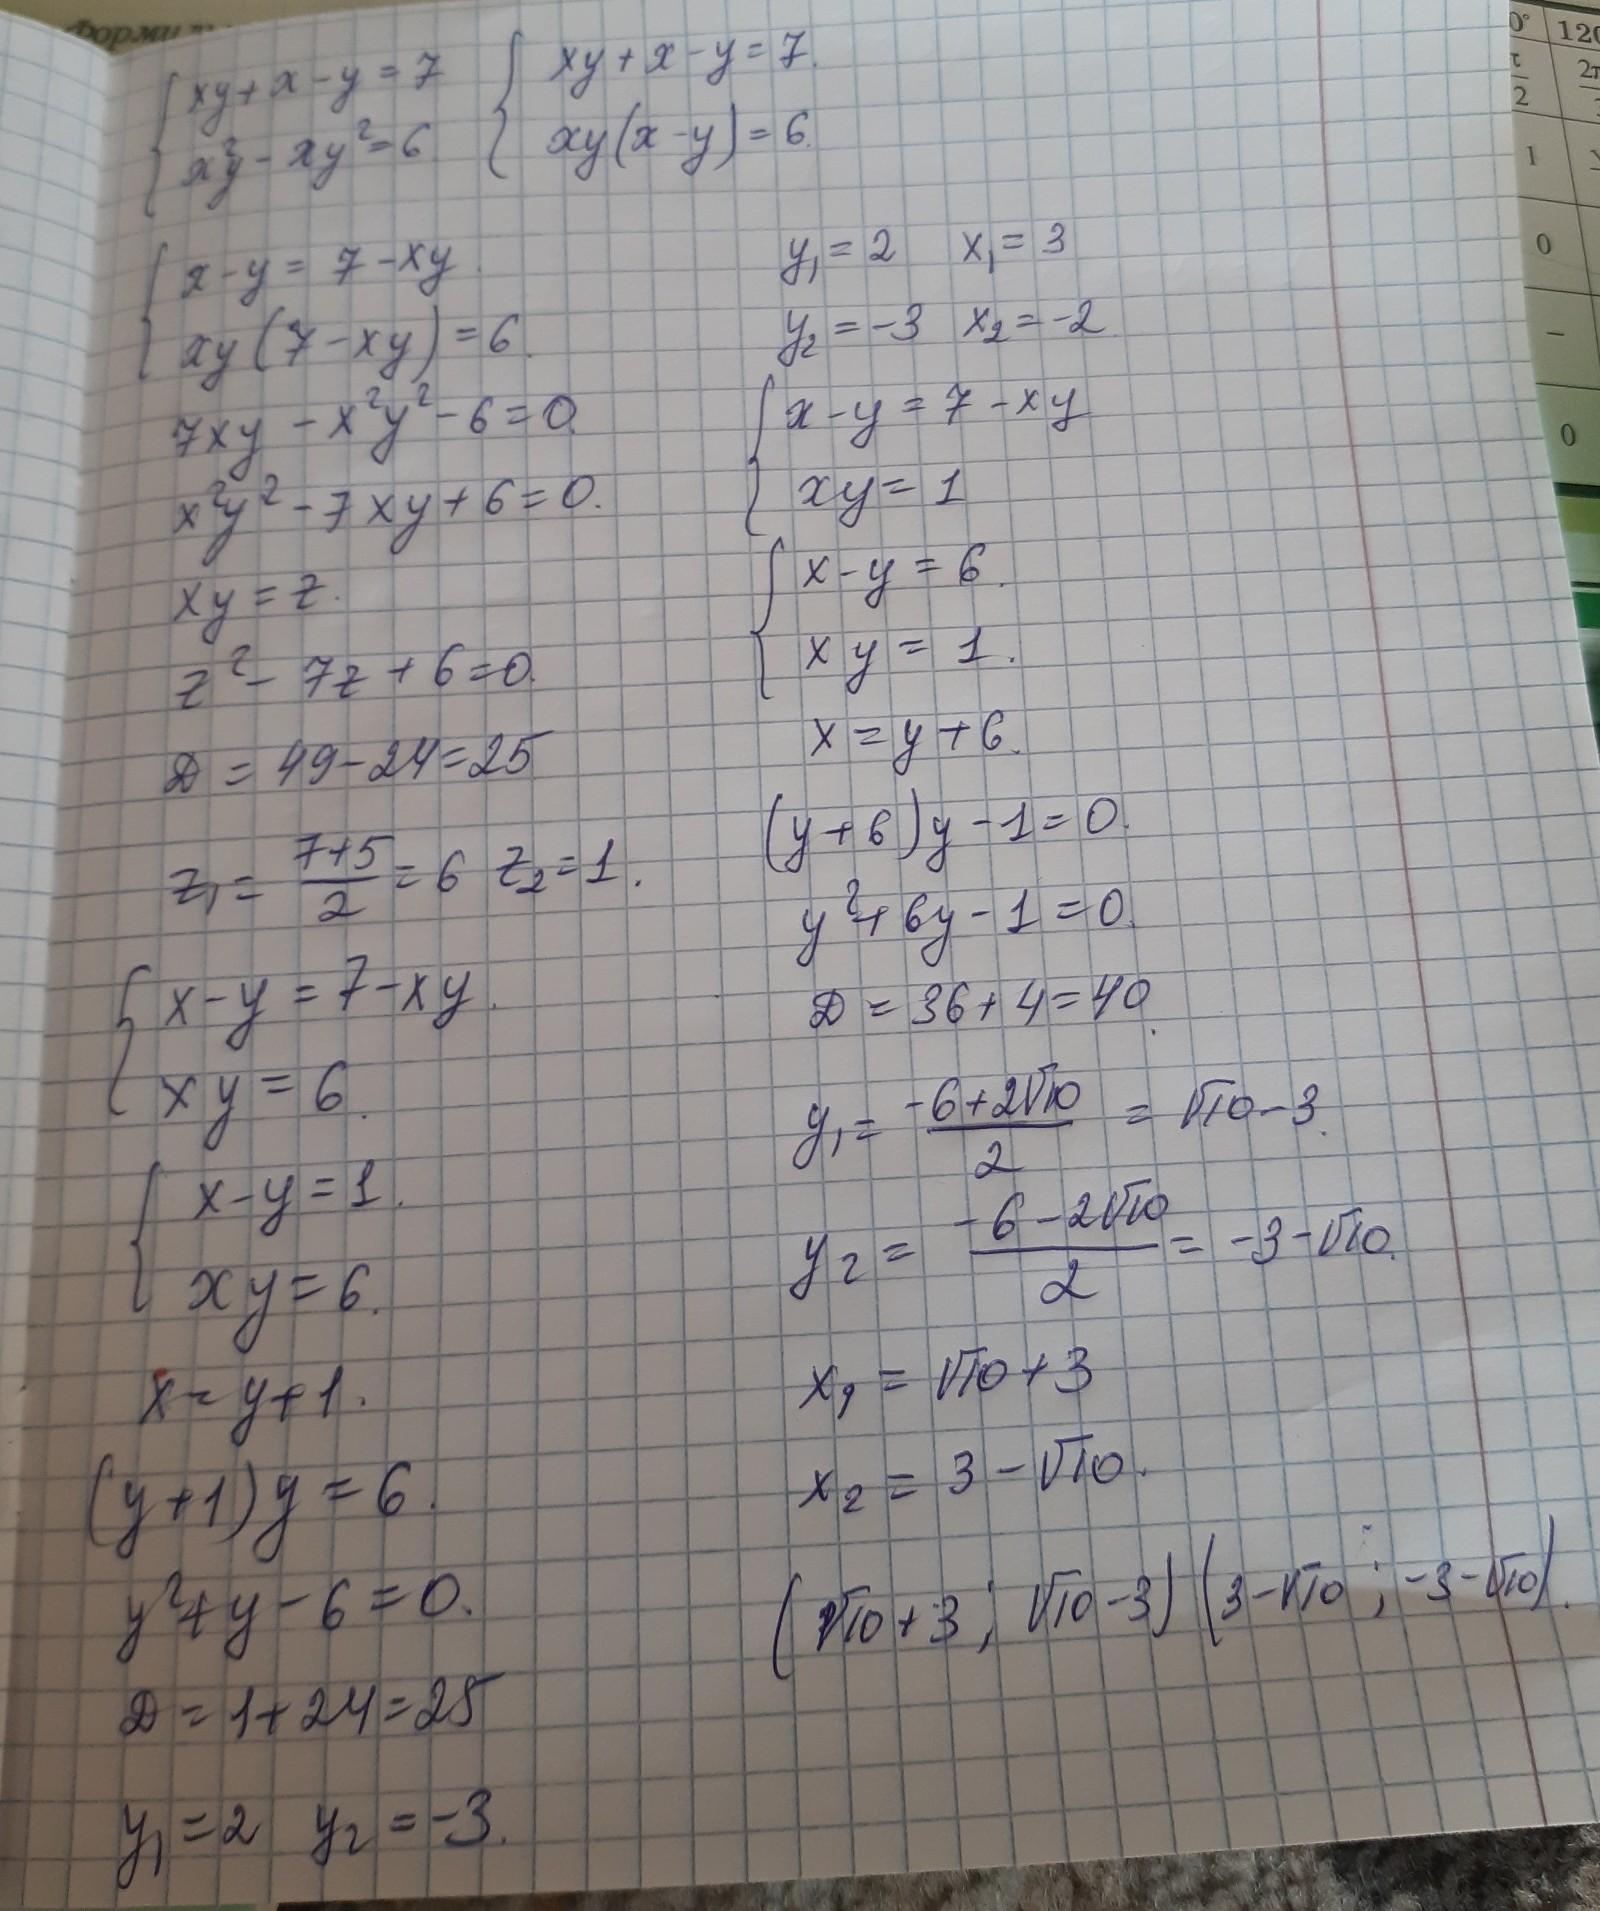 Формулы
{ xy + x - y = 7
x²y - xy² = 6
{ xy + x - y = 7.
xy(x - y) = 6.
{ x - y = 7 - xy.
xy(7 - xy) = 6.
7xy - x²y² - 6 = 0.
x²y² - 7xy + 6 = 0.
xy = z.
z² - 7z + 6 = 0.
D = 49 - 24 = 25
z₁ = (7+5)/2 = 6 z₂ = 1.
{ x - y = 7 - xy.
xy = 6.
{ x - y = 1.
xy = 6.
x = y + 1.
(y + 1)y = 6.
y² + y - 6 = 0.
D = 1 + 24 = 25
y₁ = 2 y₂ = -3.
y₁ = 2 x₁ = 3
y₂ = -3 x₂ = -2.
{ x - y = 7 - xy
xy = 1
{ x - y = 6.
xy = 1.
x = y + 6.
(y + 6)y - 1 = 0.
y² + 6y - 1 = 0.
D = 36 + 4 = 40.
y₁ = (-6 + 2√10)/2 = √10 - 3.
y₂ = (-6 - 2√10)/2 = -3 - √10.
x₁ = √10 + 3
x₂ = 3 - √10.
(√10 + 3; √10 - 3) (3 - √10; -3 - √10).
0° 120
π/2 2π
1
0
–
0